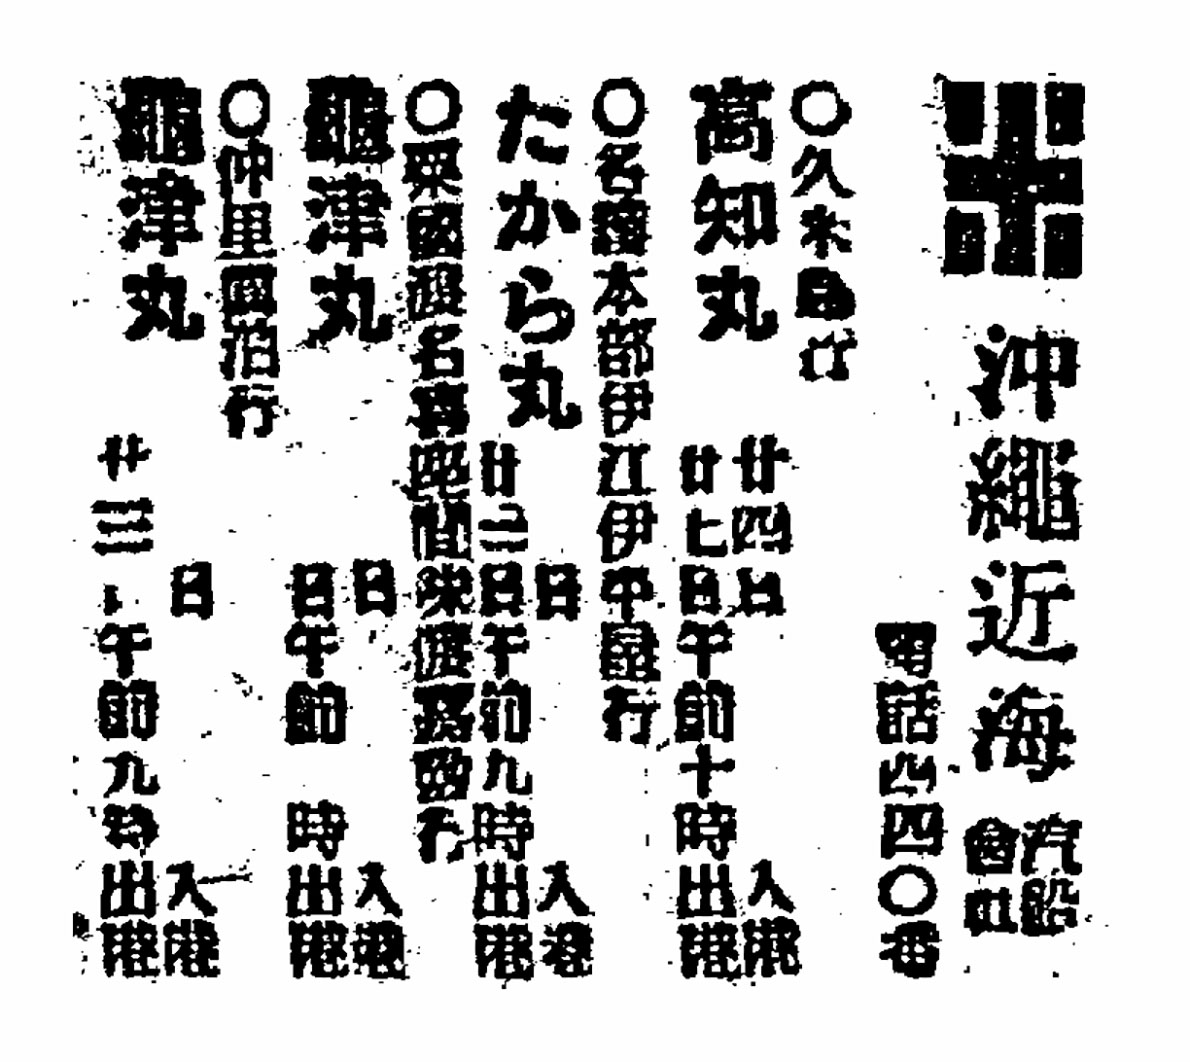 沖繩近海汽船會社
電話四四〇番
〇久米島行
高知丸
廿四日入港
廿七日午前十時出港
〇名護本部伊江伊平屋行
たから丸
日入港
廿二日午前九時出港
〇粟國渡名喜座間味渡嘉敷行
龜津丸
日入港
日午前 時出港
〇仲里國泊行
龜津丸
日入港
廿三日午前九時出港